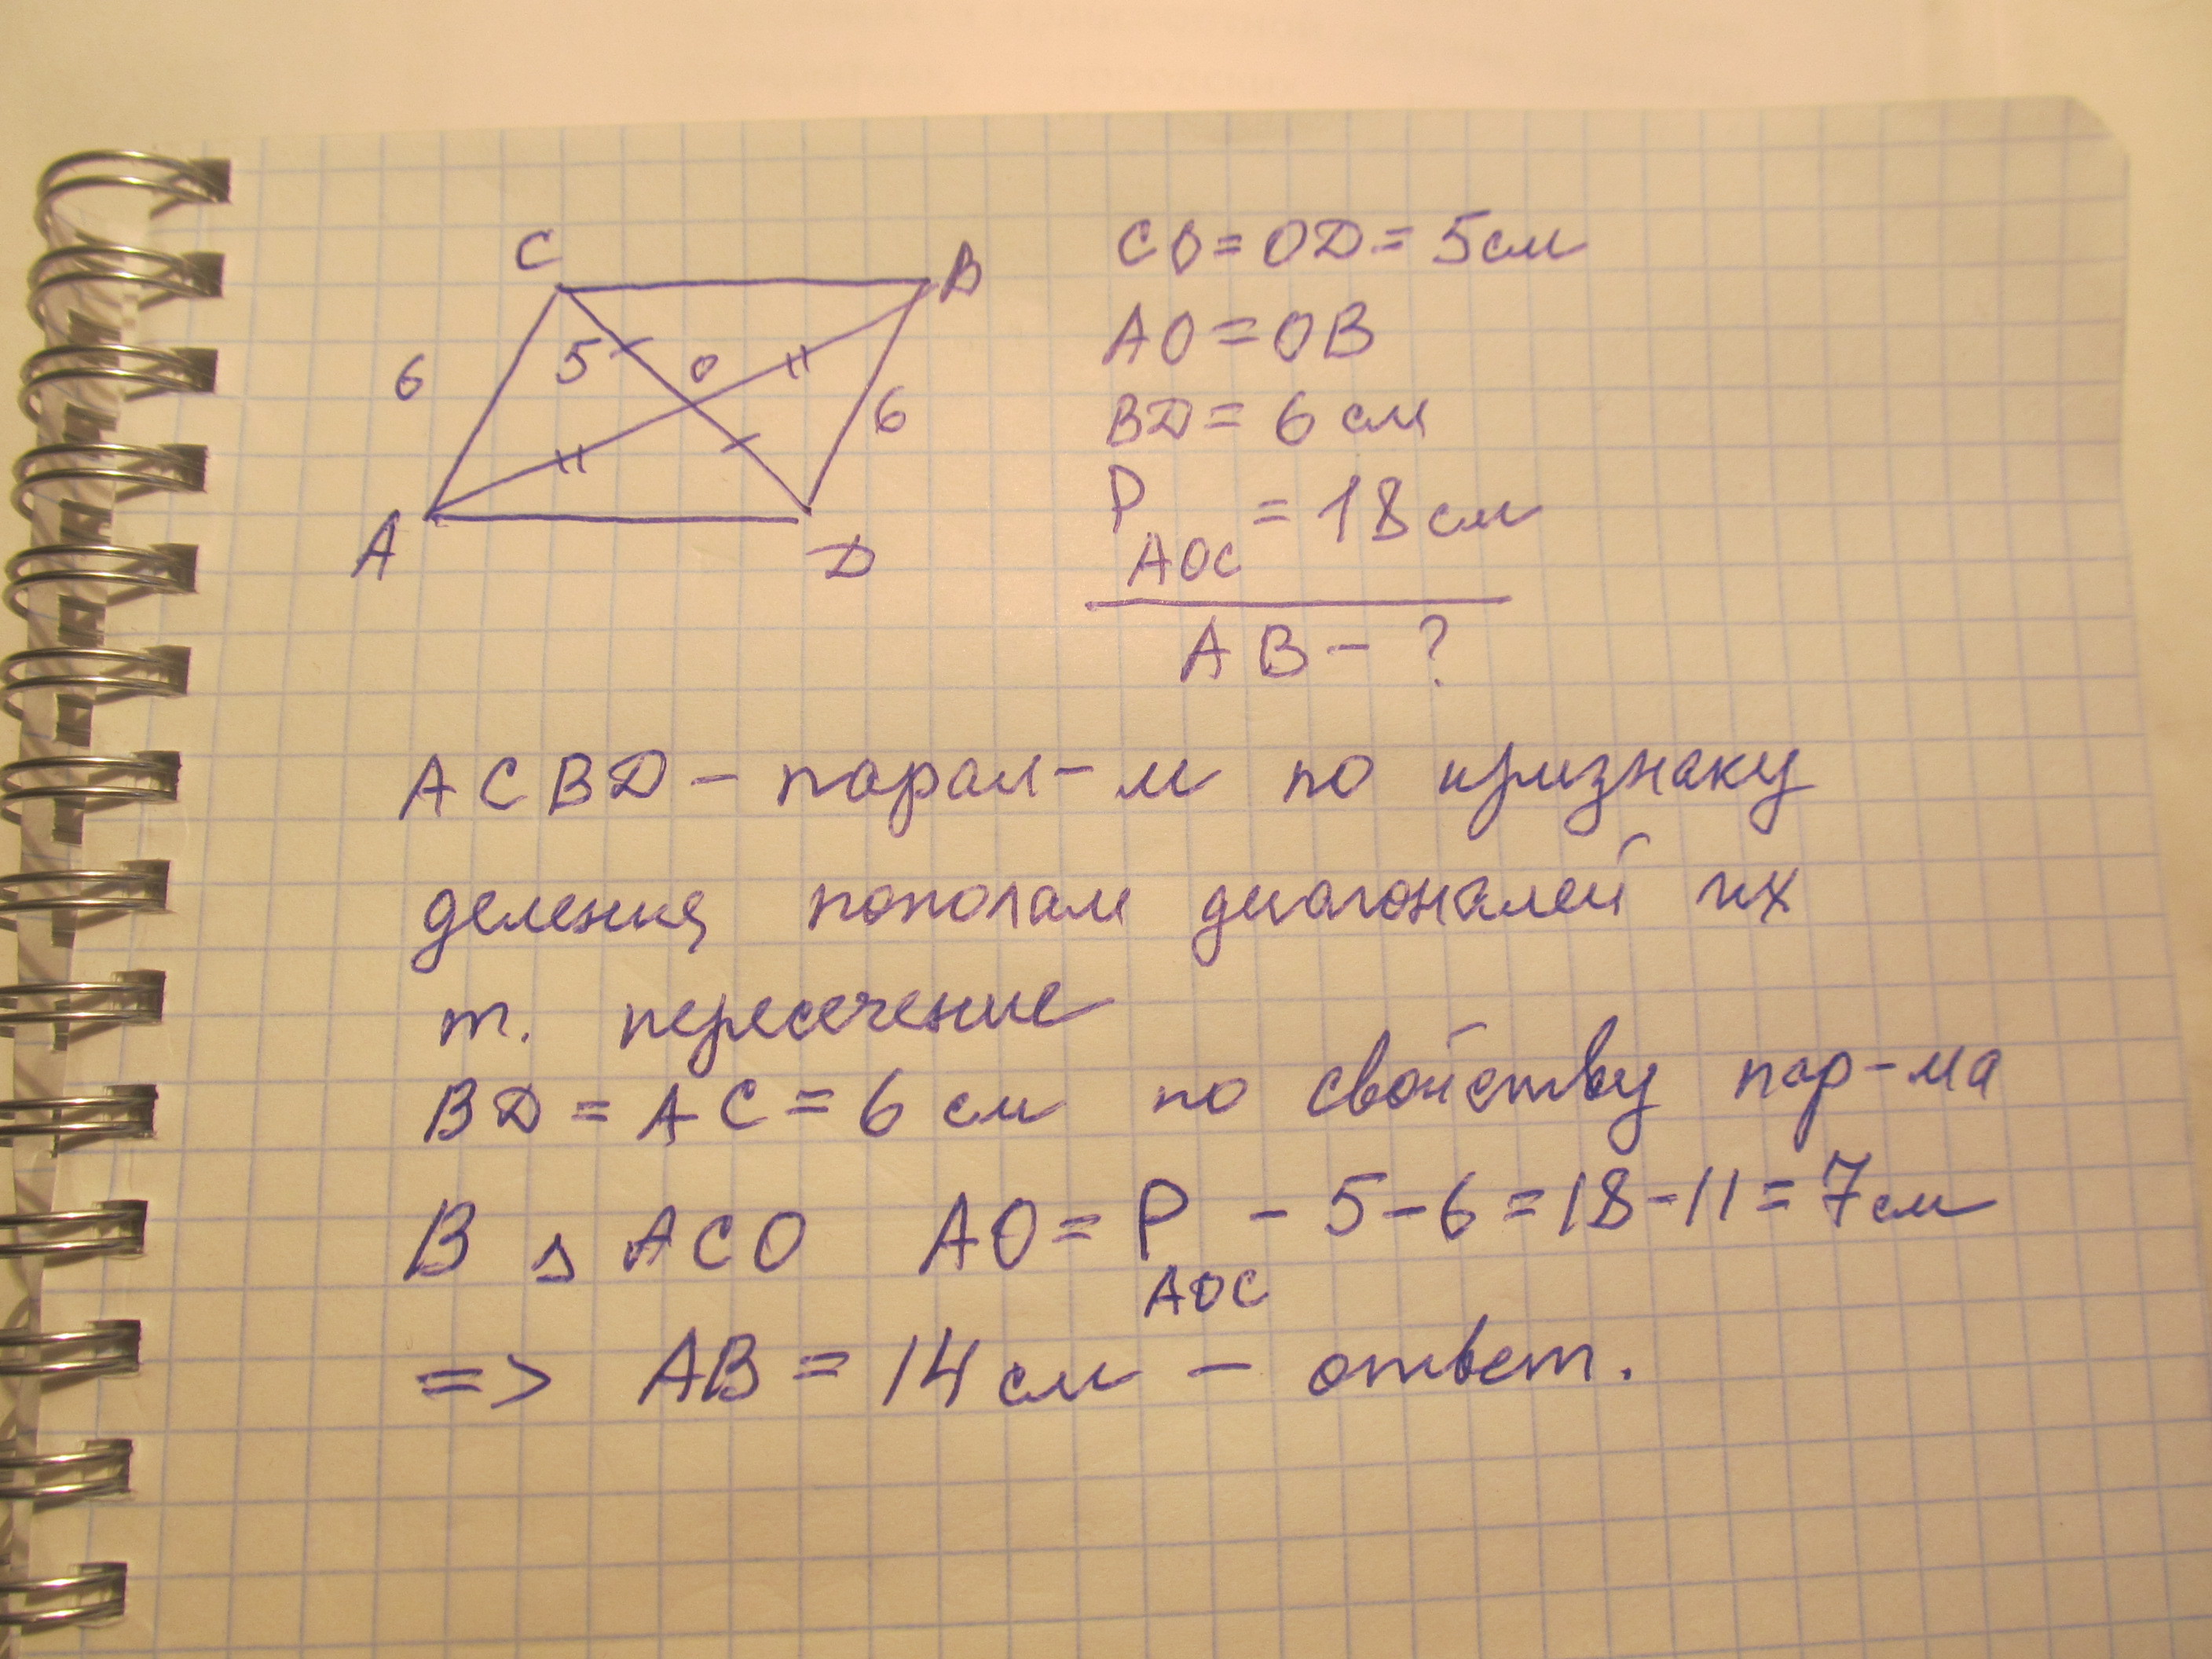 C
B
6
5
O
6
A
D
CO = OD = 5 см
AO = OB
BD = 6 см
P
AOC
= 18 см
AB - ?
ACBD - парал-м по признаку
деления пополам диагоналей их
т. пересечение
BD = AC = 6 см по свойству пар-ма
В △ ACO AO = P - 5 - 6 = 18 - 11 = 7 см
AOC
=> AB = 14 см - ответ.